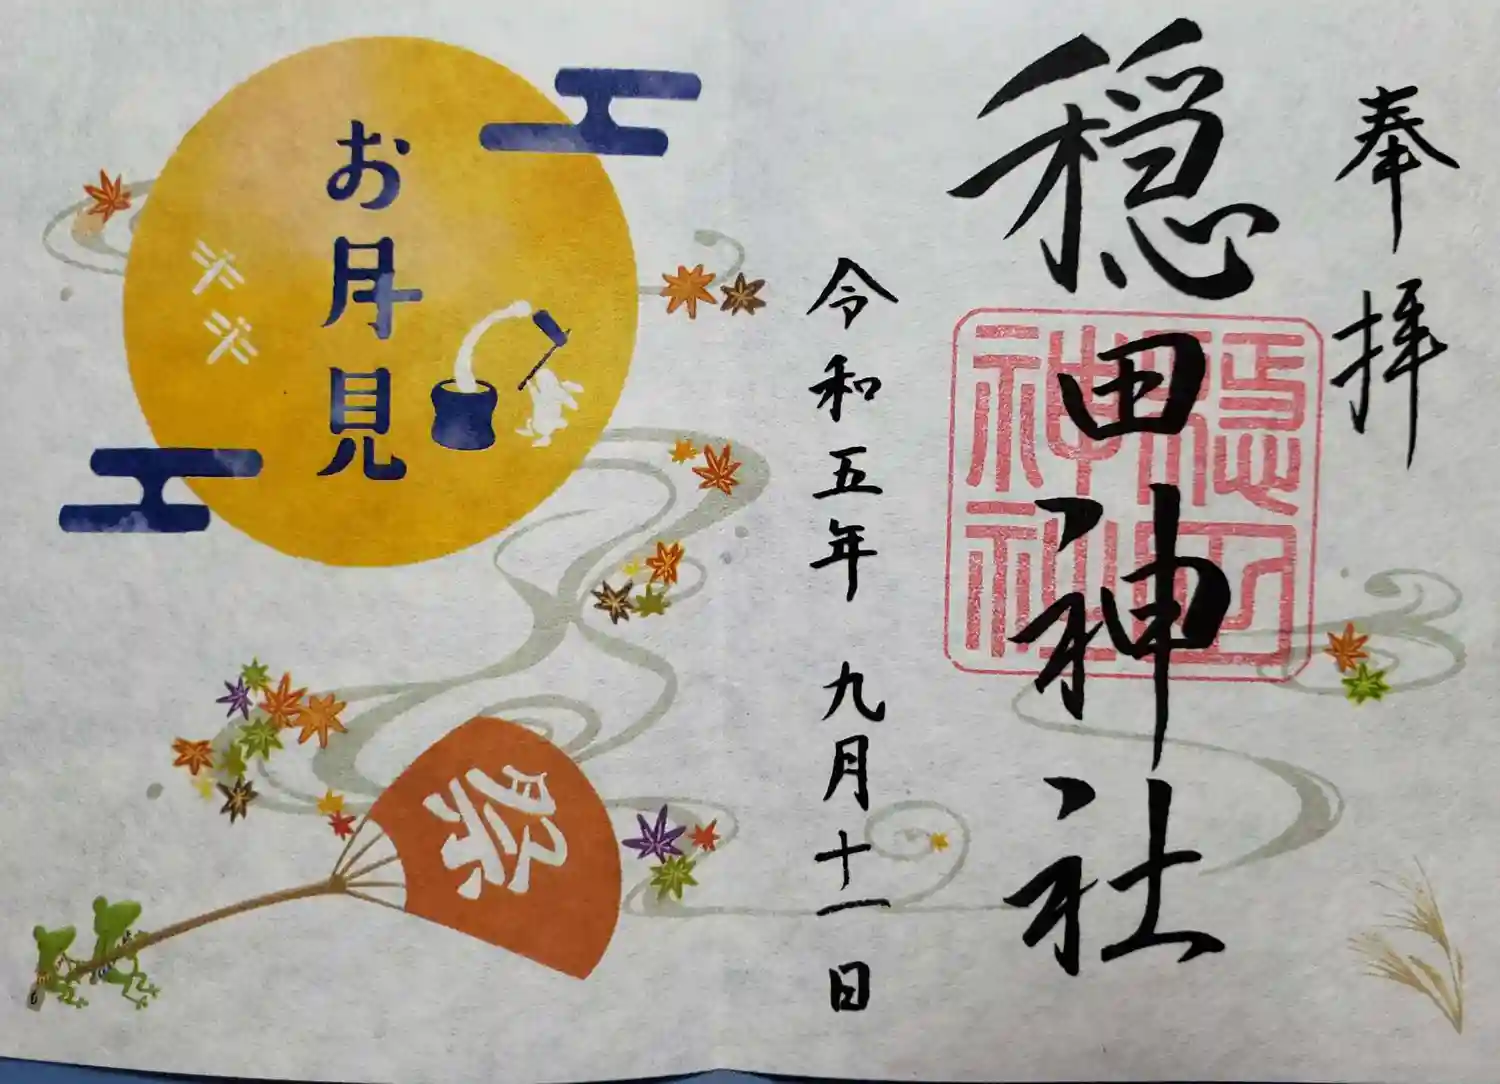 奉拝
穏田神社
穏田
神社
令和五年 九月十一日
お月見
祭